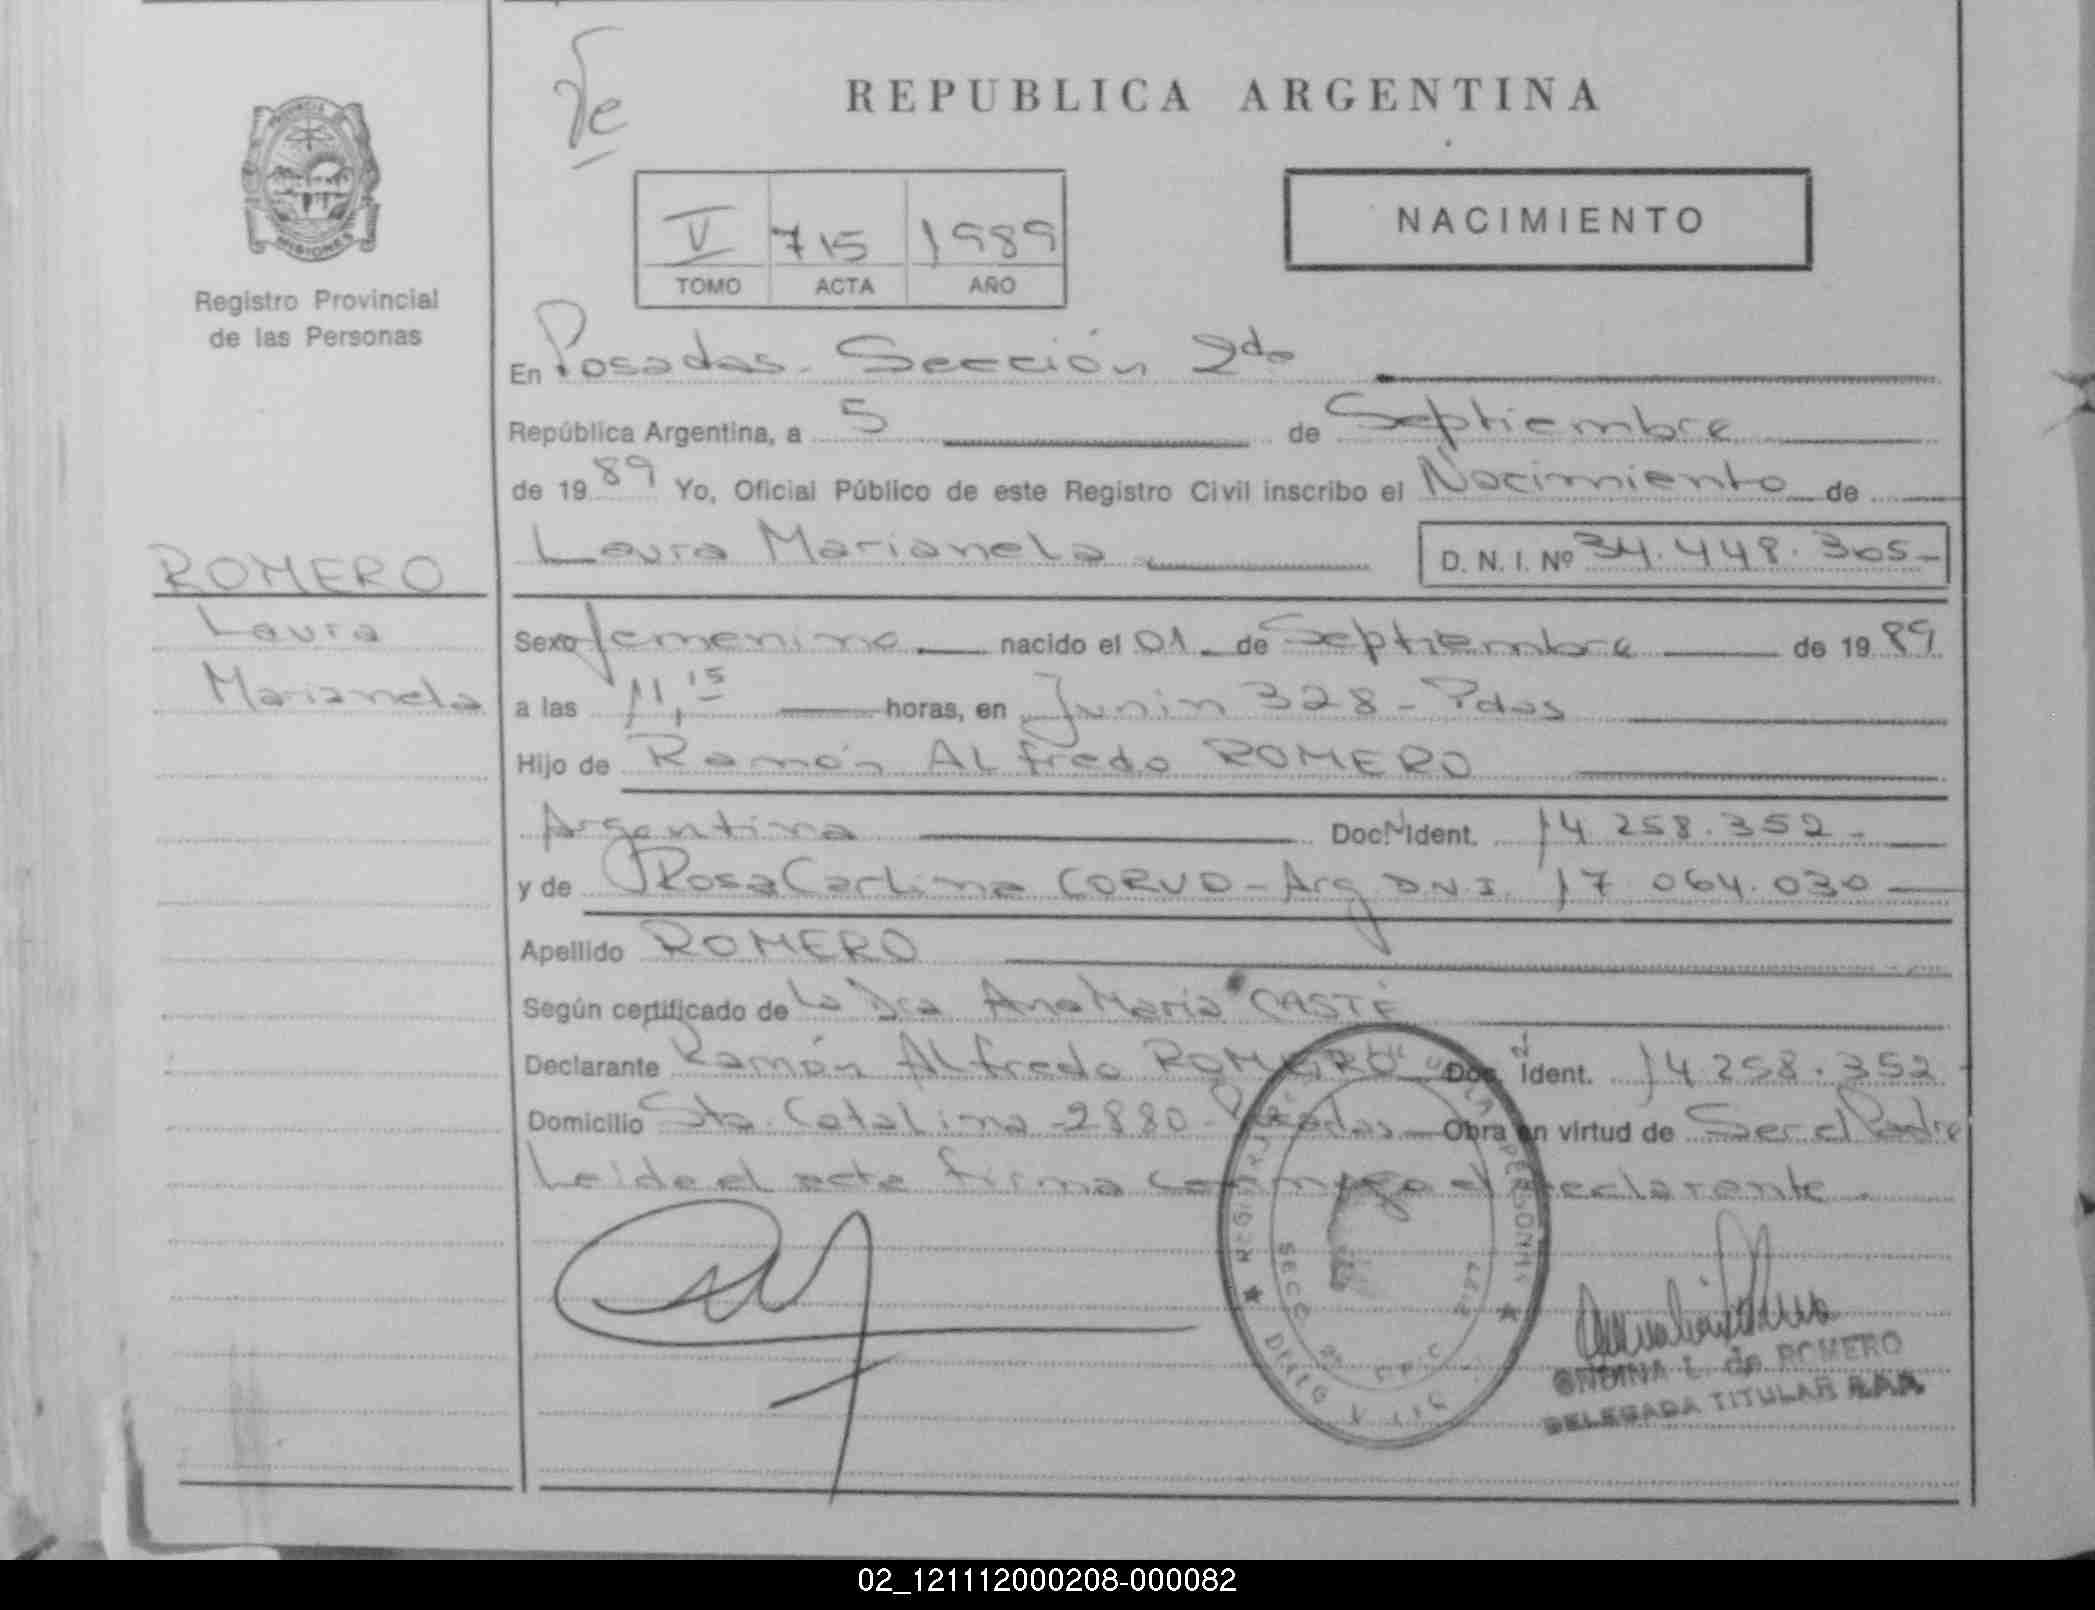 Ve
REPUBLICA ARGENTINA
PROVINCIA
MISIONES
Registro Provincial
de las Personas
V 715 1989
TOMO ACTA AÑO
NACIMIENTO
En Posadas - Sección 2da
República Argentina, a 5 de Septiembre
de 1989 Yo, Oficial Público de este Registro Civil inscribo el Nacimiento de
Laura Marianela D. N. I. Nº 34.448.305-
ROMERO
Laura
Marianela
Sexo femenino nacido el 01 de Septiembre de 1989
a las 11,15 horas, en Junin 328 - Pdas
Hijo de Ramón Alfredo ROMERO
Argentina Doc. N Ident. 14.258.352-
y de Rosa CORVO - Arg D.N.I. 17.064.030
Apellido ROMERO
Según certificado de La Dra Ana Maria CASTÉ
Declarante Ramón Alfredo ROMERO Doc. Ident. 14.258.352
Domicilio Sta. Catalina 2880 - Posadas Obra en virtud de Ser el Padre
Leida el acta firma conmigo el declarante.
ONDINA L. de ROMERO
DELEGADA TITULAR
02_121112000208-000082